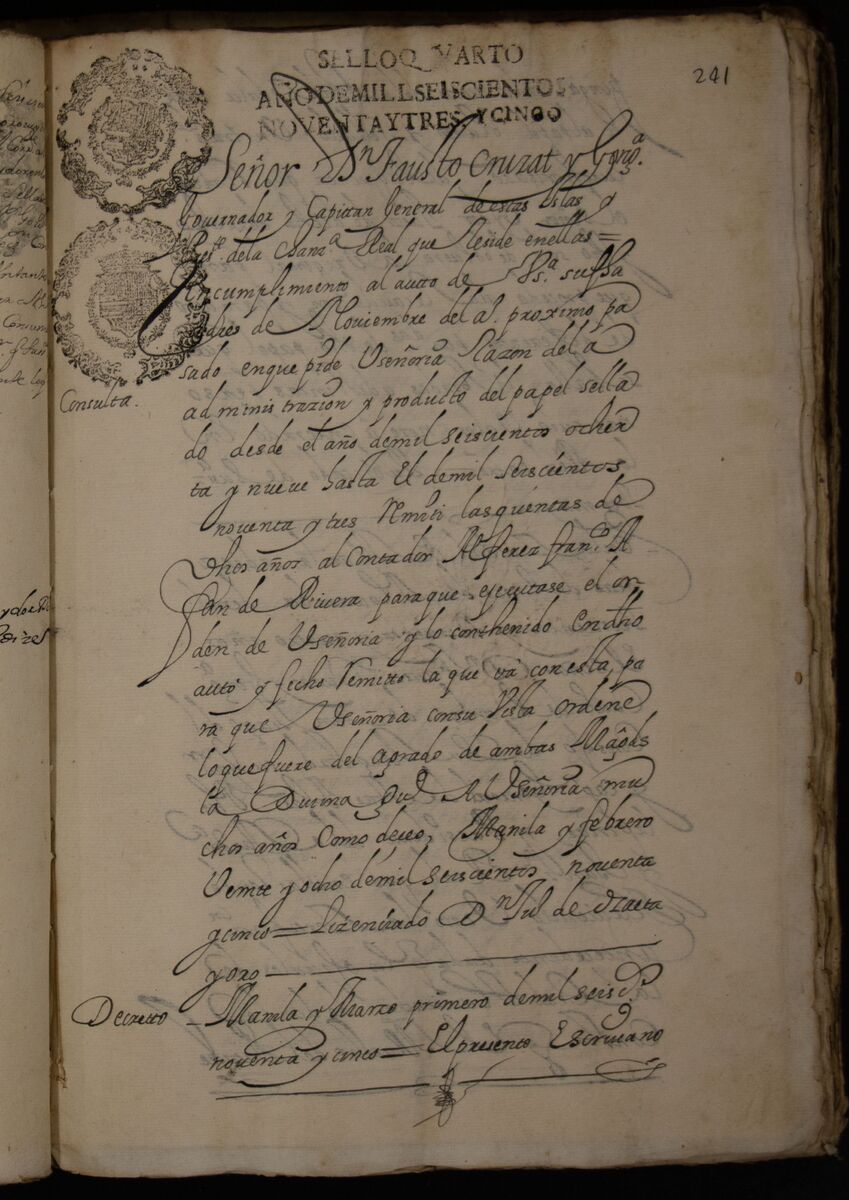 241
SELLO QVARTO
AÑO DE MILL SEISCIENTOS
NOVENTA Y TRES, Y CINCO
Señor Dn Fausto Cruzat y Gonga
Governador y Capitan General de estas Islas y
Press.te dela Chanz.a Real que Reside en ellas =
En cumplimiento al auto de Vs.a su fha
dres de Noviembre del a.o proximo pa
sado en que pide Vseñoria Razon del a
administrazion y producto del papel sella
do desde el año demil seiscientos ochen
ta y nueve hasta El demil seiscientos
noventa y tres Remiti las quentas de
dhos años al contador Alferez fran.co R
fan de Rivera para que ejecutase el or-
den de Vseñoria y lo conthenido en dho
auto y fecho remitto la que va con esta pa
ra que Vseñoria con su Vista ordene
lo que fuere del agrado de ambas Magds
la Divina gu.e A Vseñoria mu
chos años como deceo, Manila y febrero
Veinte y ocho demil seiscientos noventa
y cinco = Lizenciado Dn Ju.o de Ozaeta
y oro
Consulta.
Decretto - Manila y Marzo primero demil seisc.os
noventa y cinco = El presente Escrivano